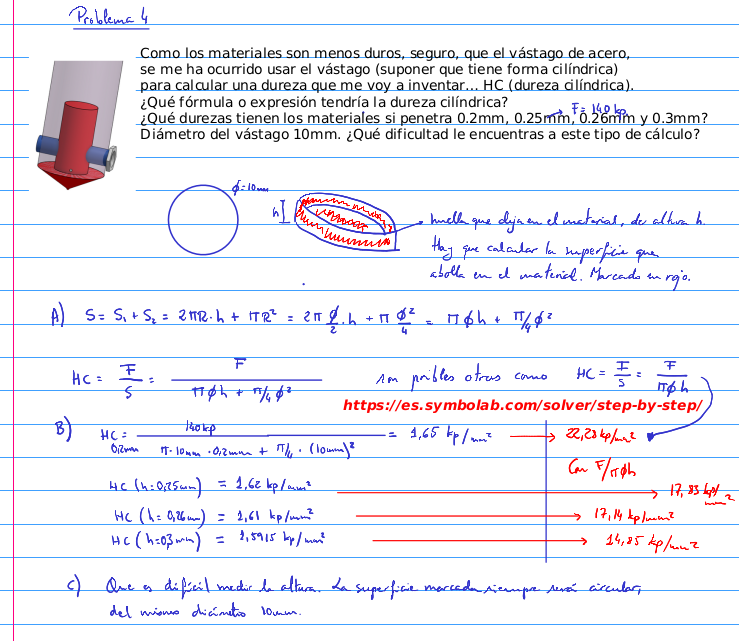 Problema 4
Como los materiales son menos duros, seguro, que el vástago de acero,
se me ha ocurrido usar el vástago (suponer que tiene forma cilíndrica)
para calcular una dureza que me voy a inventar... HC (dureza cilíndrica).
¿Qué fórmula o expresión tendría la dureza cilíndrica?
→ F = 140 kp
¿Qué durezas tienen los materiales si penetra 0.2mm, 0.25mm, 0.26mm y 0.3mm?
Diámetro del vástago 10mm. ¿Qué dificultad le encuentras a este tipo de cálculo?
ϕ = 10mm
h
huella que deja en el material, de altura h.
Hay que calcular la superficie que
abolla en el material. Marcado en rojo.
A) S = S₁ + S₂ = 2πR·h + πR² = 2π ϕ/2 · h + π ϕ²/4 = πϕh + π/4 ϕ²
HC = F/S = F / (πϕh + π/4 ϕ²) son posibles otras como HC = F/S = F/πϕh
https://es.symbolab.com/solver/step-by-step/
B) HC 0,2mm = 140kp / (π·10mm·0,2mm + π/4·(10mm)²) = 1,65 kp/mm² → 22,28 kp/mm²
Con F/πϕh
HC (h=0,25mm) = 1,62 kp/mm² → 17,83 kp/mm²
HC (h=0,26mm) = 1,61 kp/mm² → 17,14 kp/mm²
HC (h=0,3mm) = 1,5915 kp/mm² → 14,85 kp/mm²
C) Que es difícil medir la altura. La superficie marcada siempre será circular,
del mismo diámetro 10mm.